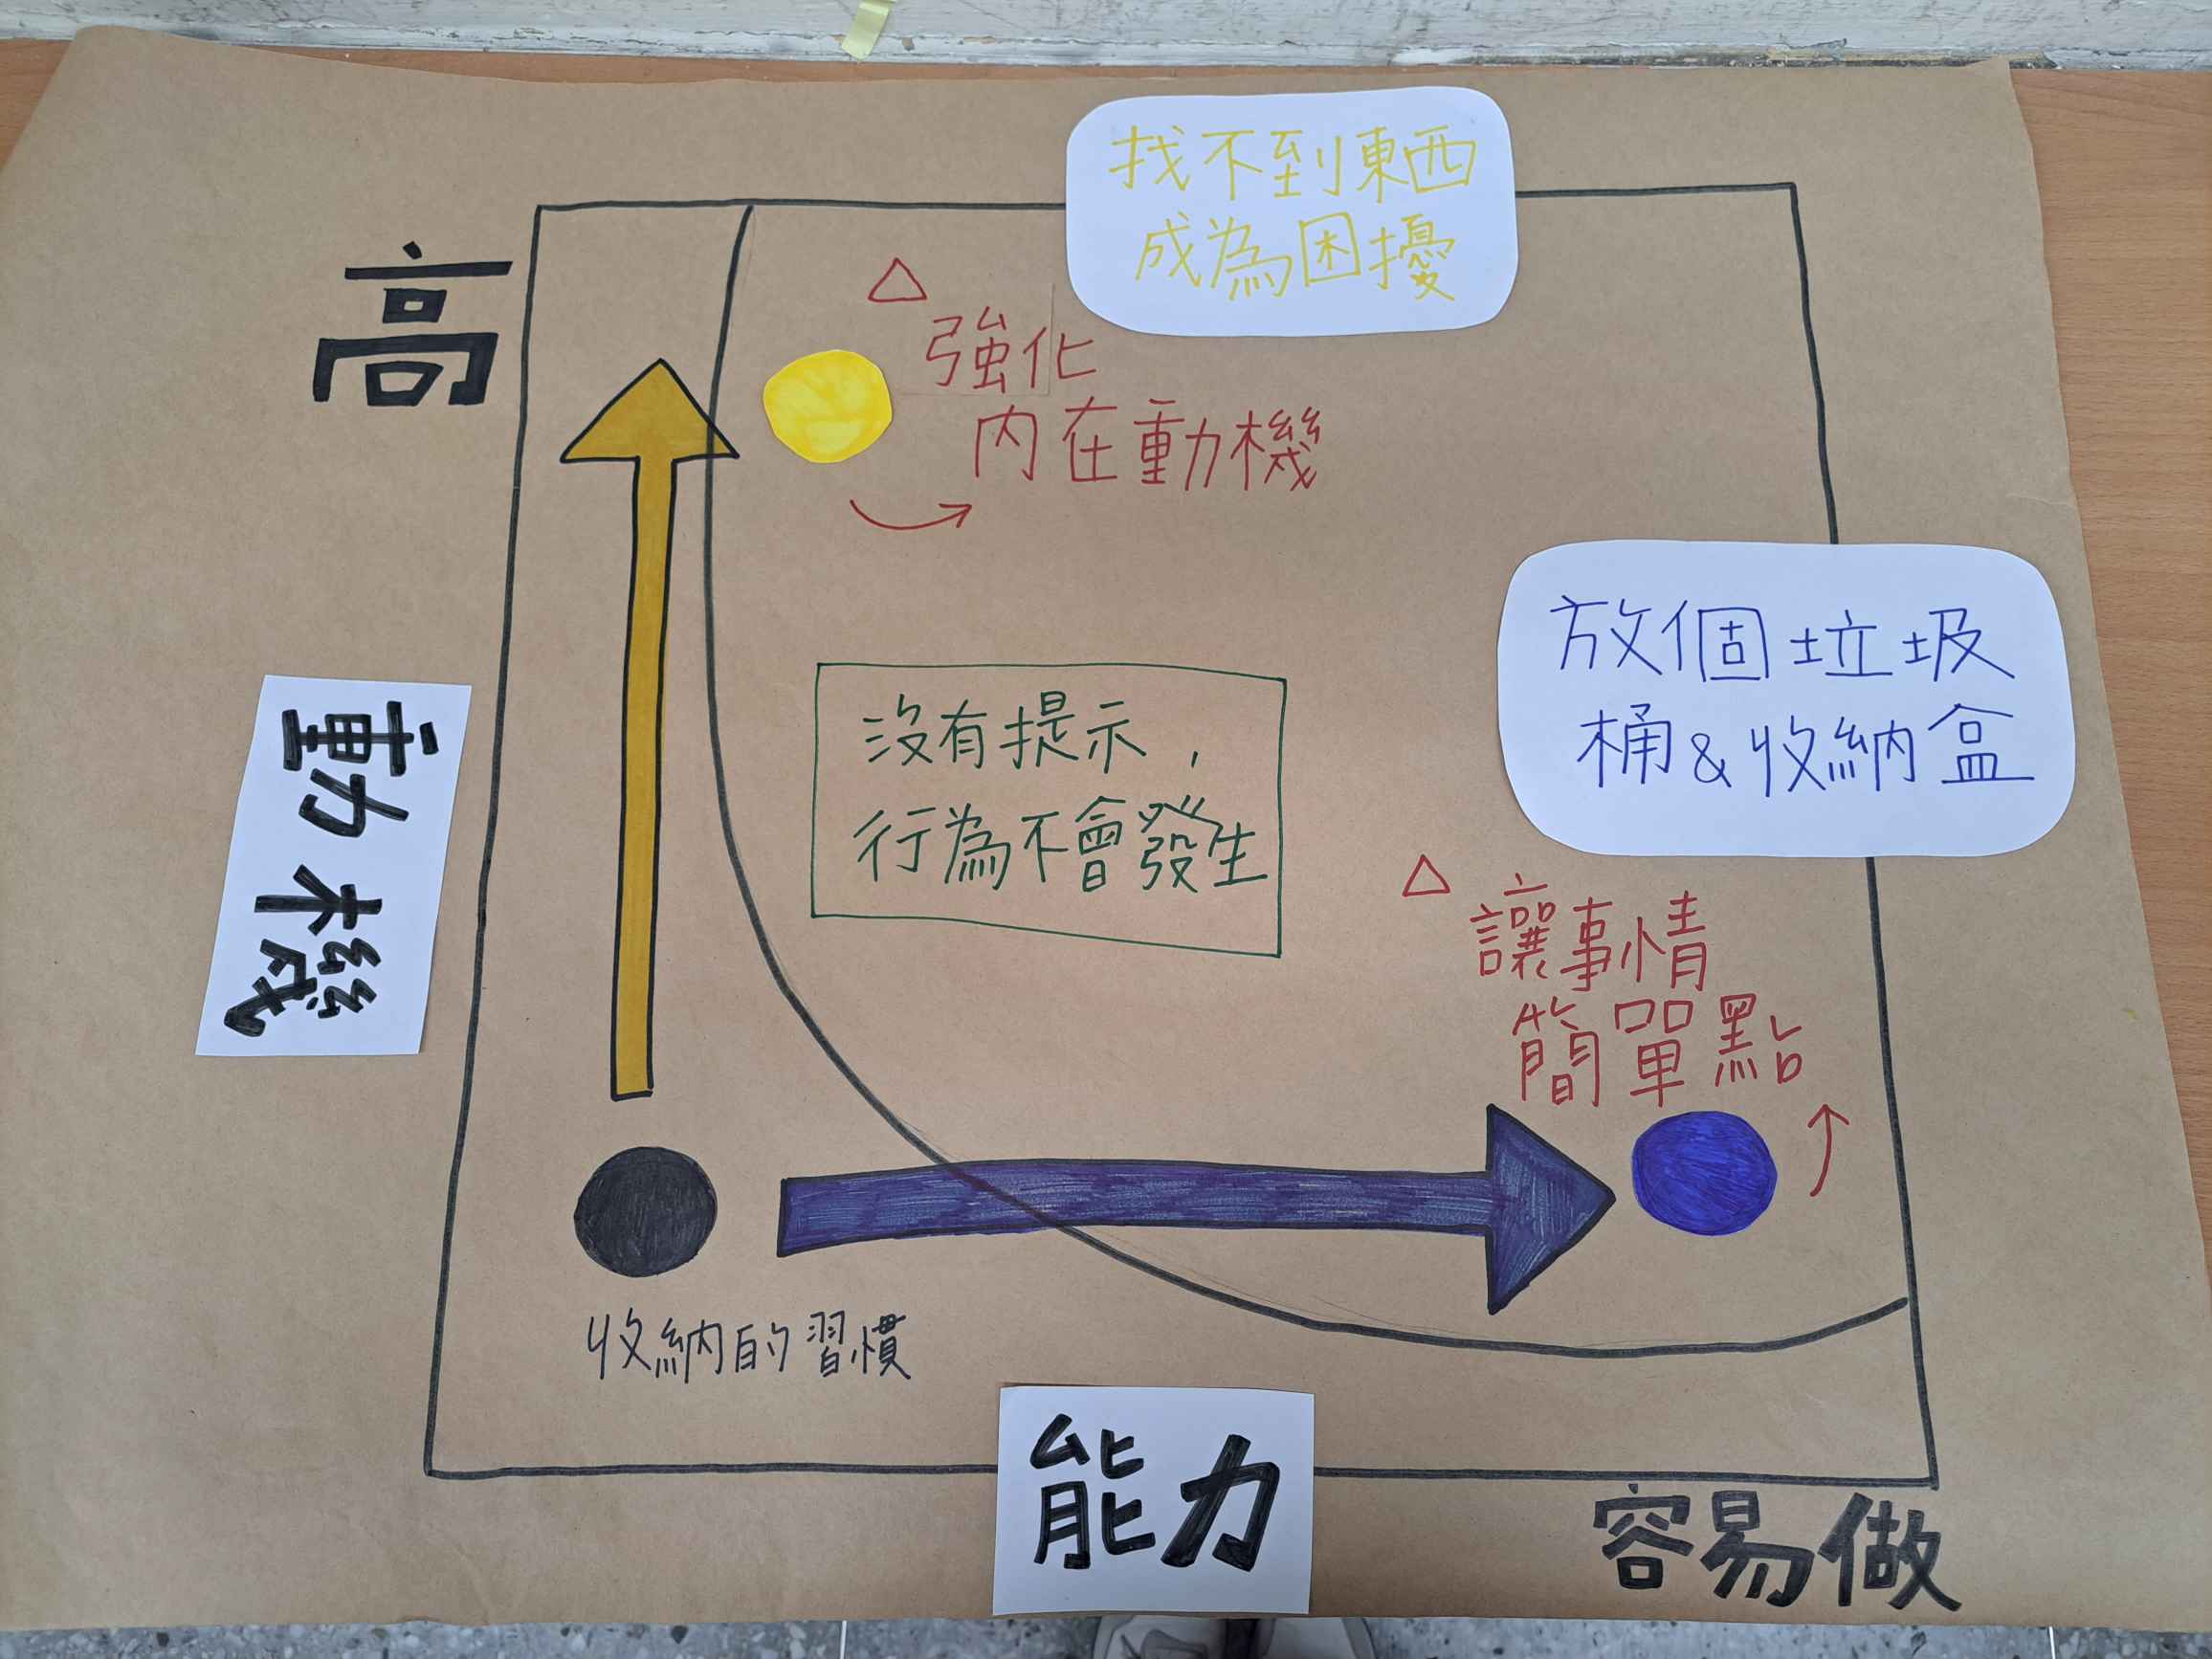 找不到東西
成為困擾
高
△
強化
內在動機
放個垃圾
桶&收納盒
動機
沒有提示，
行為不會發生
△
讓事情
簡單點
收納的習慣
能力
容易做